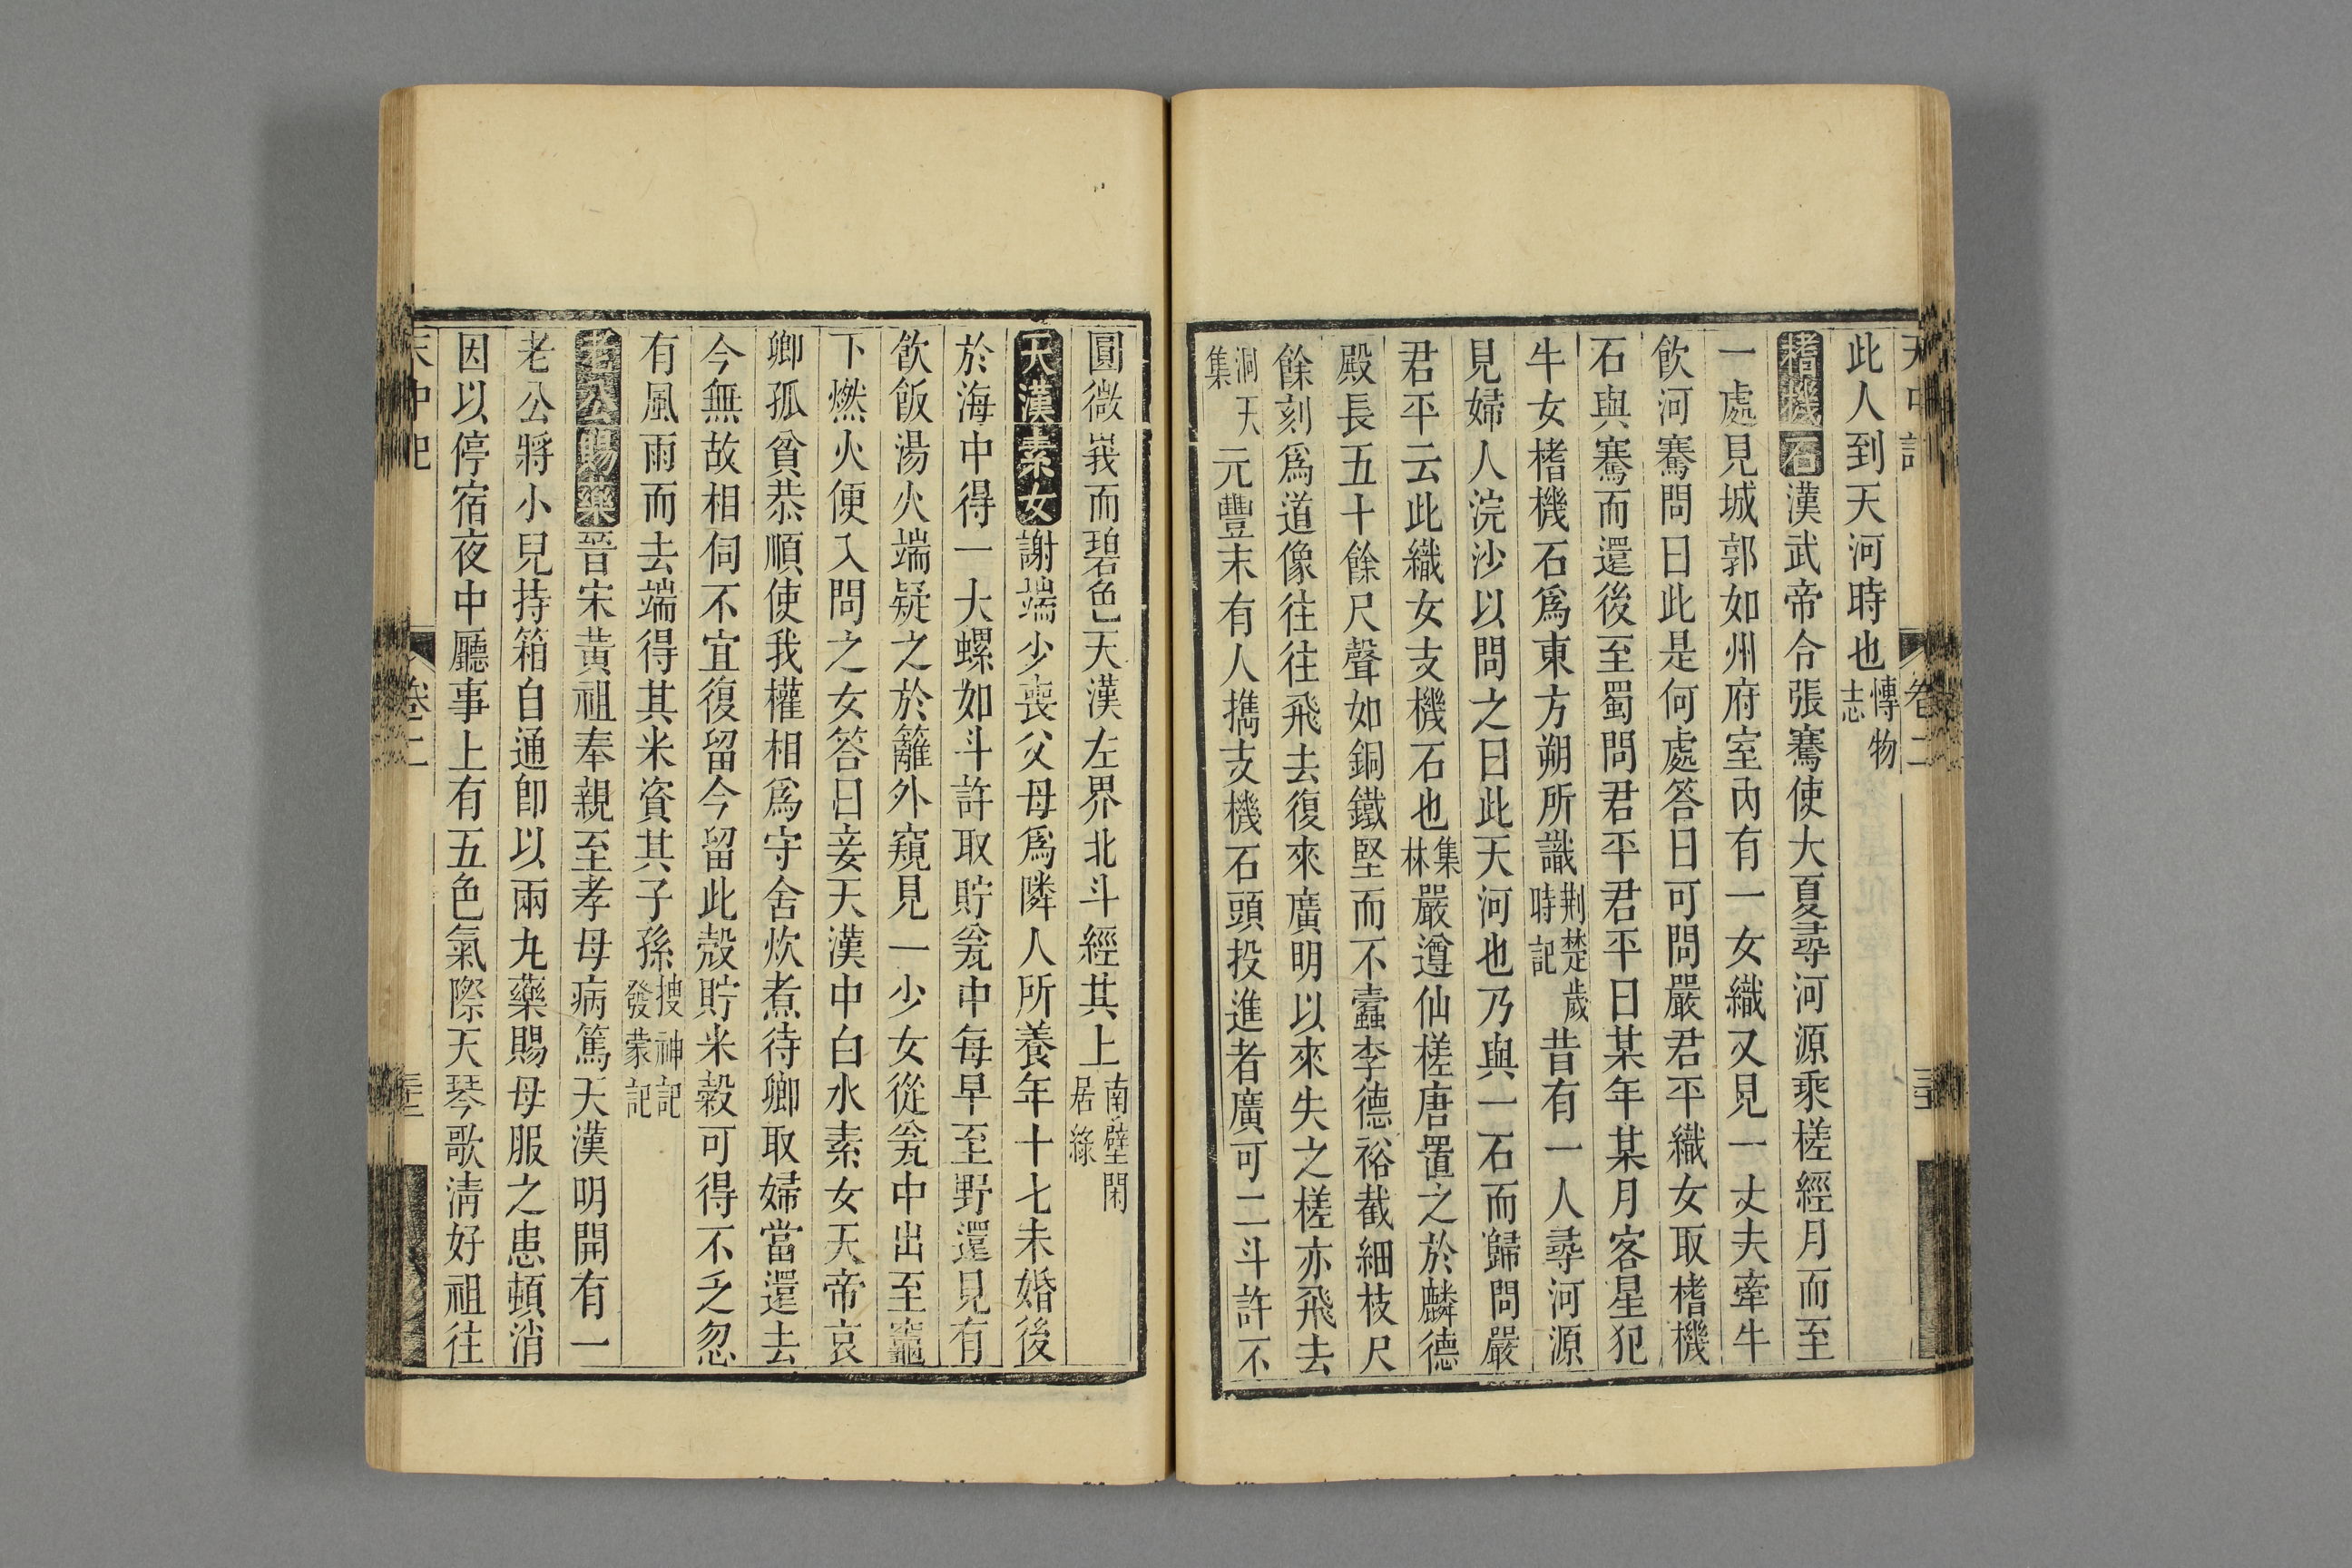 天中記 卷二
此人到天河時也 慱物志
榰機石 漢武帝令張騫使大夏尋河源乘槎經月而至
一處見城郭如州府室內有一女織又見一丈夫牽牛
飲河騫問曰此是何處答曰可問嚴君平織女取榰機
石與騫而還後至蜀問君平君平曰某年某月客星犯
牛女榰機石爲東方朔所識 荆楚歲時記 昔有一人尋河源
見婦人浣沙以問之曰此天河也乃與一石而歸問嚴
君平云此織女支機石也 集林 嚴遵仙槎唐置之於麟德
殿長五十餘尺聲如銅鐵堅而不蠹李德裕截細枝尺
餘刻爲道像往往飛去復來廣明以來失之槎亦飛去
洞天集 元豐末有人攜支機石頭投進者廣可二斗許不
圓微峩而碧色天漢左界北斗經其上 南壁閑居綠
天漢素女 謝端少喪父母爲隣人所養年十七未婚後
於海中得一大螺如斗許取貯瓮中每早至野還見有
飲飯湯火端疑之於籬外窺見一少女從瓮中出至竈
下燃火便入問之女答曰妾天漢中白水素女天帝哀
卿孤貧恭順使我權相爲守舍炊煮待卿取婦當還去
今無故相伺不宜復留今留此殼貯米穀可得不乏忽
有風雨而去端得其米資其子孫 搜神記發蒙記
老公賜藥 晉宋黃祖奉親至孝母病篤天漢明開有一
老公將小兒持箱自通卽以兩丸藥賜母服之患頓消
因以停宿夜中廳事上有五色氣際天琴歌清好祖往
天中記 卷二